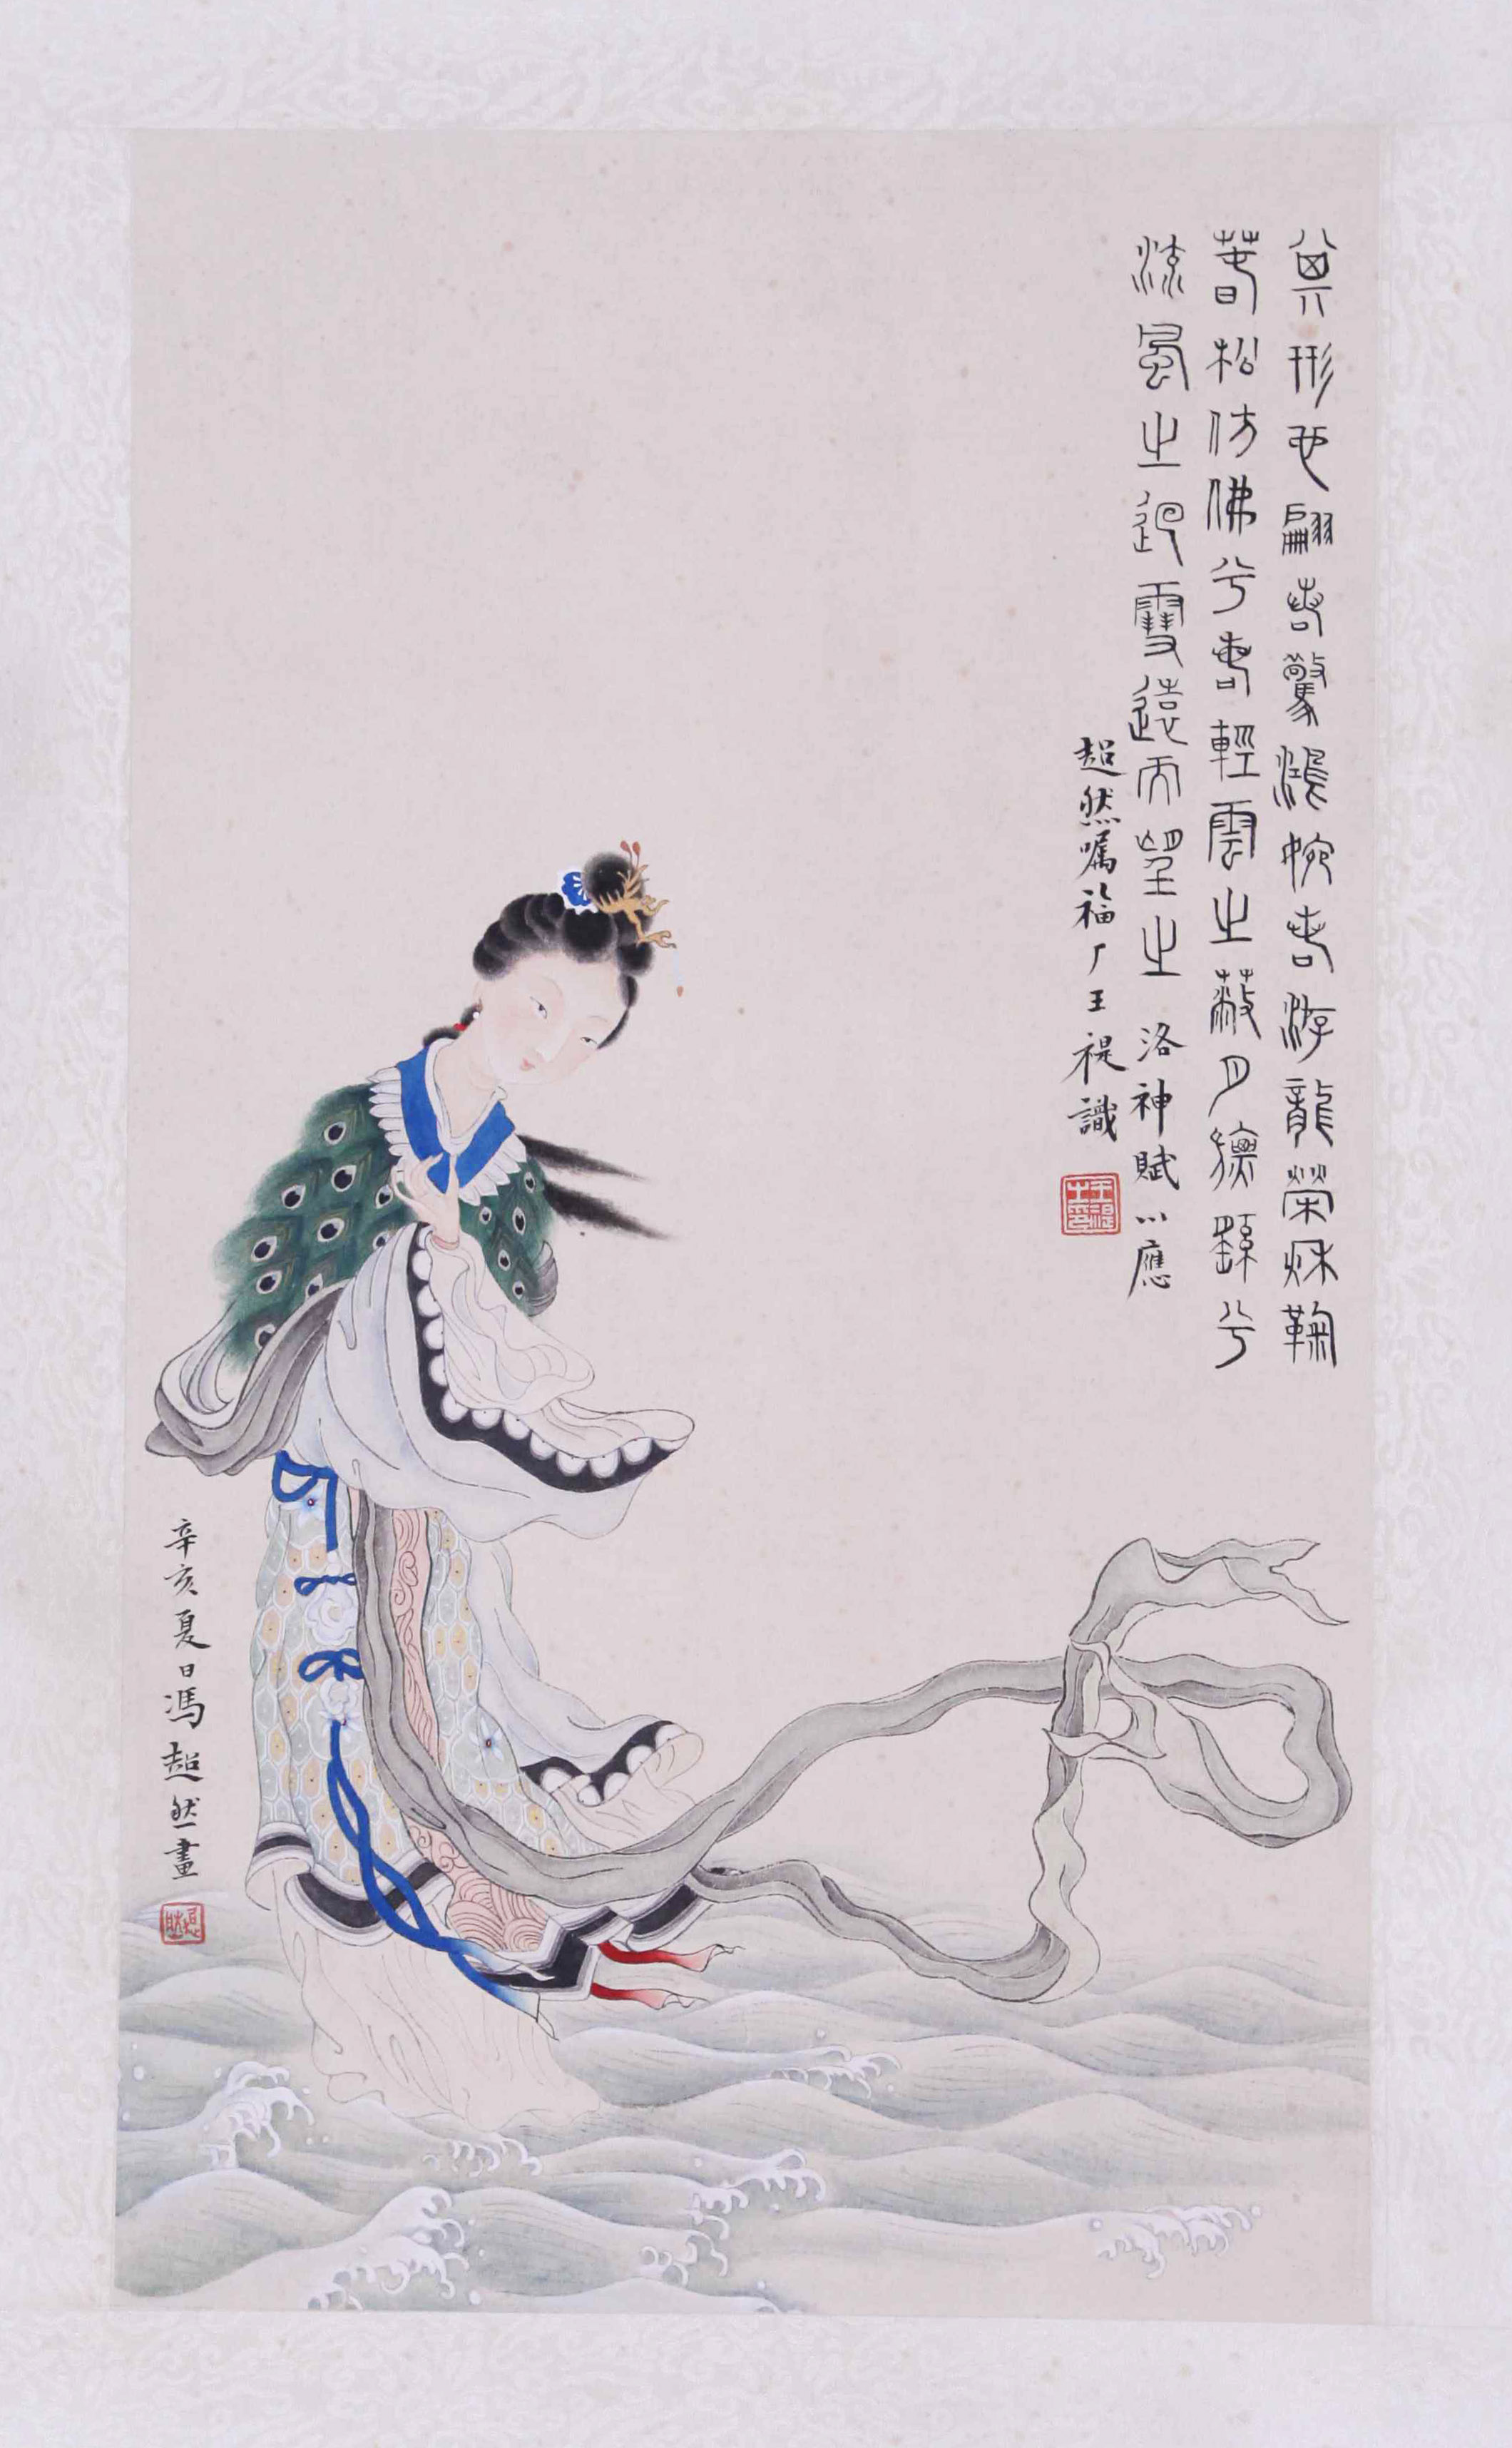 其形也翩若驚鴻婉若游龍榮秌鞠
萅松仿佛兮若輕雲之蔽月旚繇兮
流風之迴雪遠而望之 洛神賦以應
超然囑福厂王禔識
辛亥夏日馮超然畫
超然